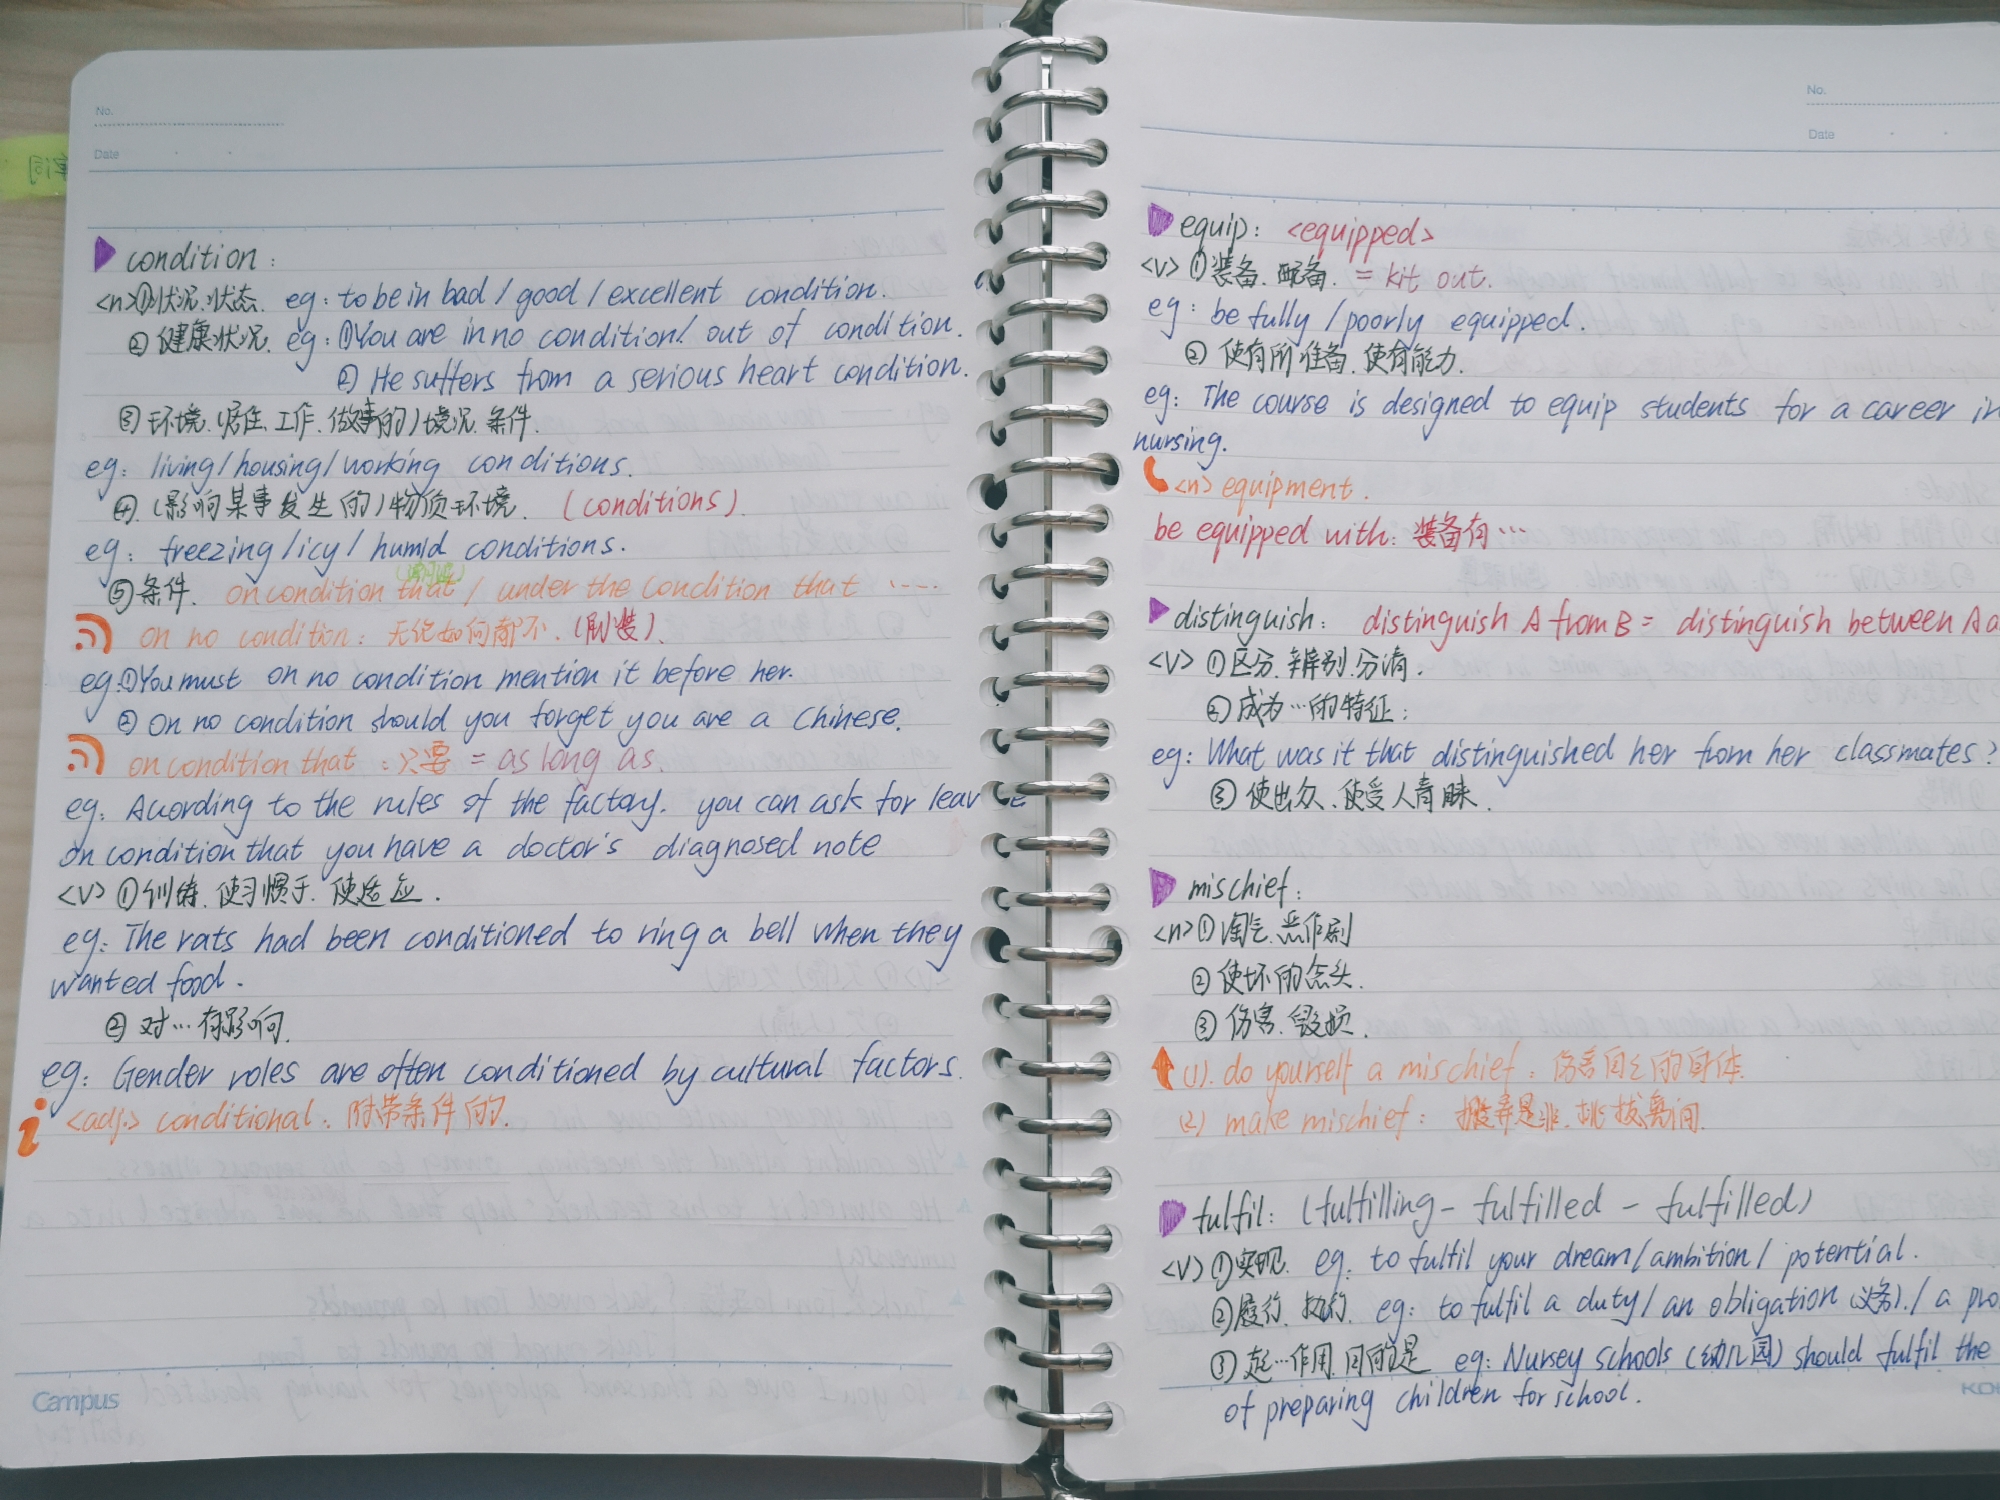 No.
Date
单词
condition:
<n>①状况.状态. eg: to be in bad / good / excellent condition.
② 健康状况. eg: ①You are in no condition/ out of condition.
② He suffers from a serious heart condition.
③ 环境.(居住.工作.做事的)境况.条件.
eg: living/housing/working conditions.
④.(影响某事发生的)物质环境. (conditions).
eg: freezing/icy/ humid conditions.
⑤条件. on condition that / under the condition that ····
on no condition: 无论如何都不.(倒装).
eg:①You must on no condition mention it before her.
② On no condition should you forget you are a Chinese.
on condition that : 只要 = as long as.
eg: Acording to the rules of the factory. you can ask for leave
on condition that you have a doctor's diagnosed note
<V> ①训练.使习惯于.使适应.
eg: The rats had been conditioned to ring a bell when they
wanted food.
② 对…有影响.
eg: Gender roles are often conditioned by cultural factors.
<adj.> conditional: 附带条件的.
Campus
No.
Date
equip: <equipped>
<V> ①装备.配备. = kit out.
eg: be fully /poorly equipped.
② 使有所准备.使有能力.
eg: The course is designed to equip students for a career in
nursing.
<n> equipment.
be equipped with: 装备有…
distinguish: distinguish A from B = distinguish between A a
<V> ①区分.辨别.分清.
②成为…的特征:
eg: What was it that distinguished her from her classmates?
③ 使出众.使受人青睐.
mischief:
<n>① 淘气.恶作剧
② 使坏的念头.
③ 伤害.毁损.
(1). do yourself a mischief: 伤害自己的身体.
(2) make mischief: 搬弄是非.挑拨离间.
fulfil: (fulfilling- fulfilled - fulfilled)
<V> ①实现. eg. to fulfil your dream/ambition/ potential.
②履行.执行. eg: to fulfil a duty/ an obligation (义务). / a pro
③ 起…作用.目的是 eg: Nursey schools (幼儿园) should fulfil the
of preparing children for school.